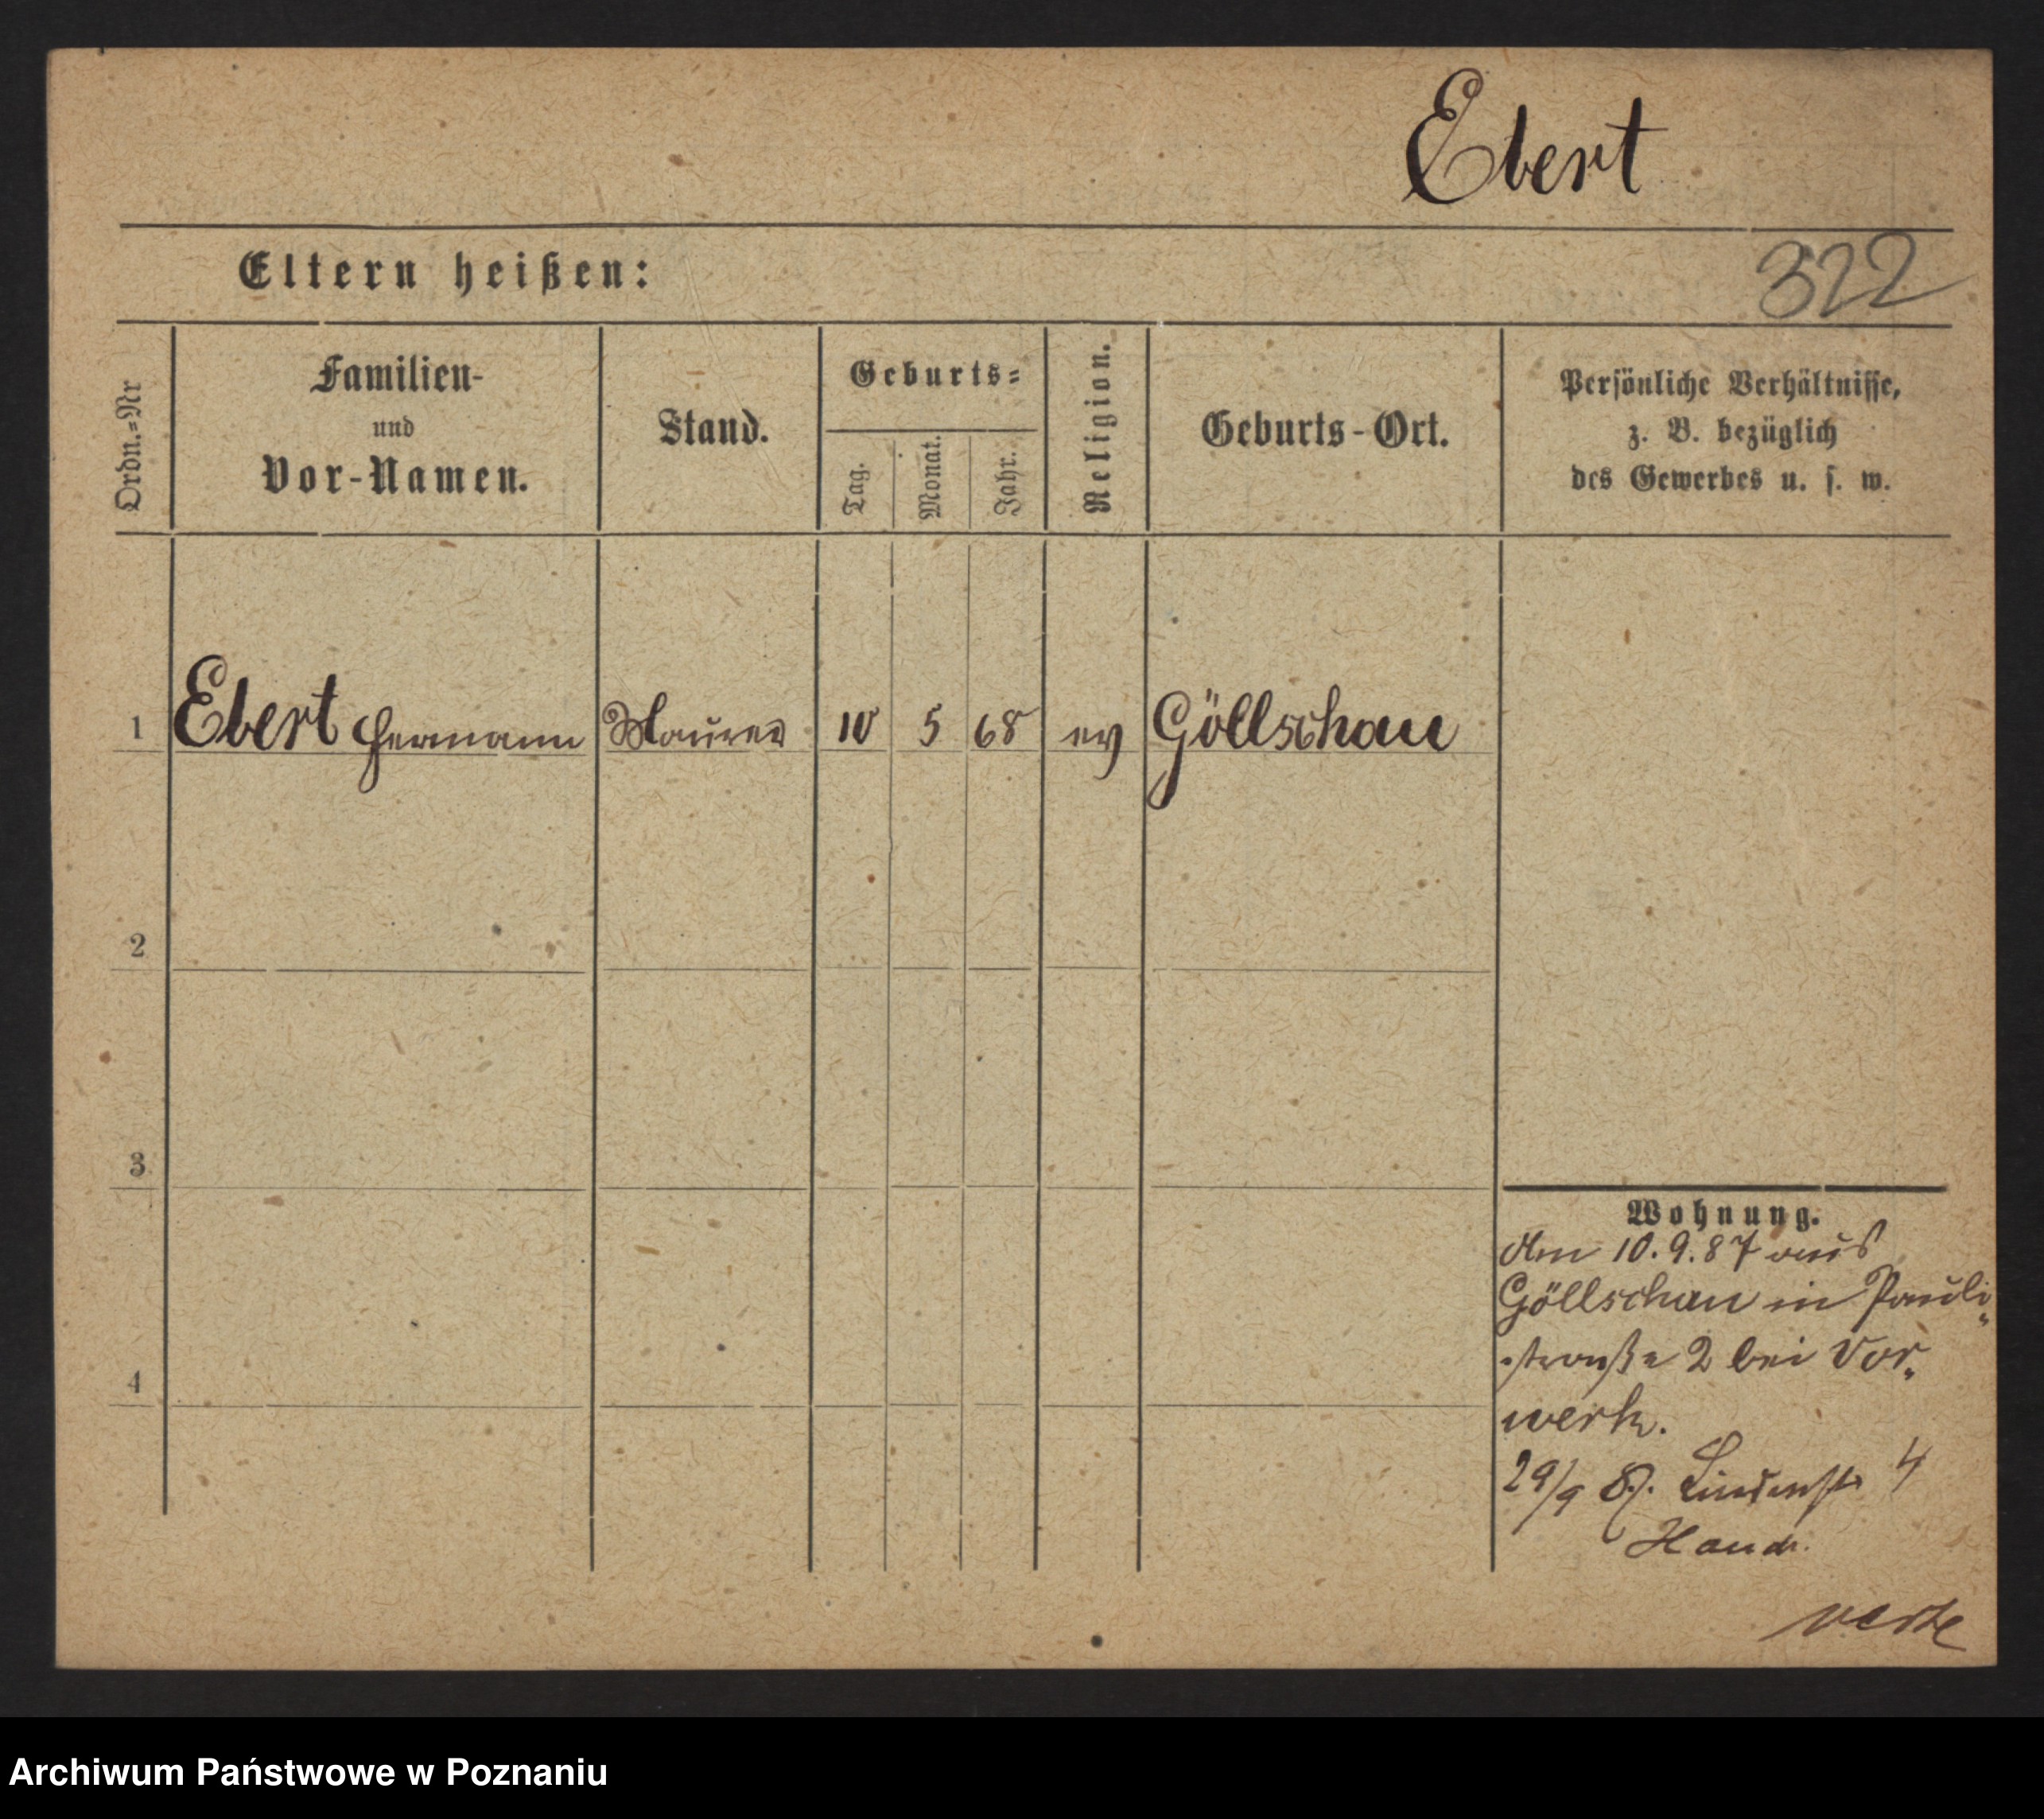 Ebert
Eltern heißen:
322
Ordn.=Nr
Familien-
und
Vor-Namen.
Stand.
Geburts=
Tag.
Monat.
Jahr.
Religion.
Geburts-Ort.
Persönliche Verhältnisse,
z. B. bezüglich
des Gewerbes u. s. w.
1 Ebert Hermann Maurer 10 5 68 ev Göllschau
2
3
4
Wohnung.
Am 10.9.87 aus
Göllschau in Pauli„
„straße 2 bei Vor„
werk.
29/9 87. Lindenstr 4
verte
Archiwum Państwowe w Poznaniu